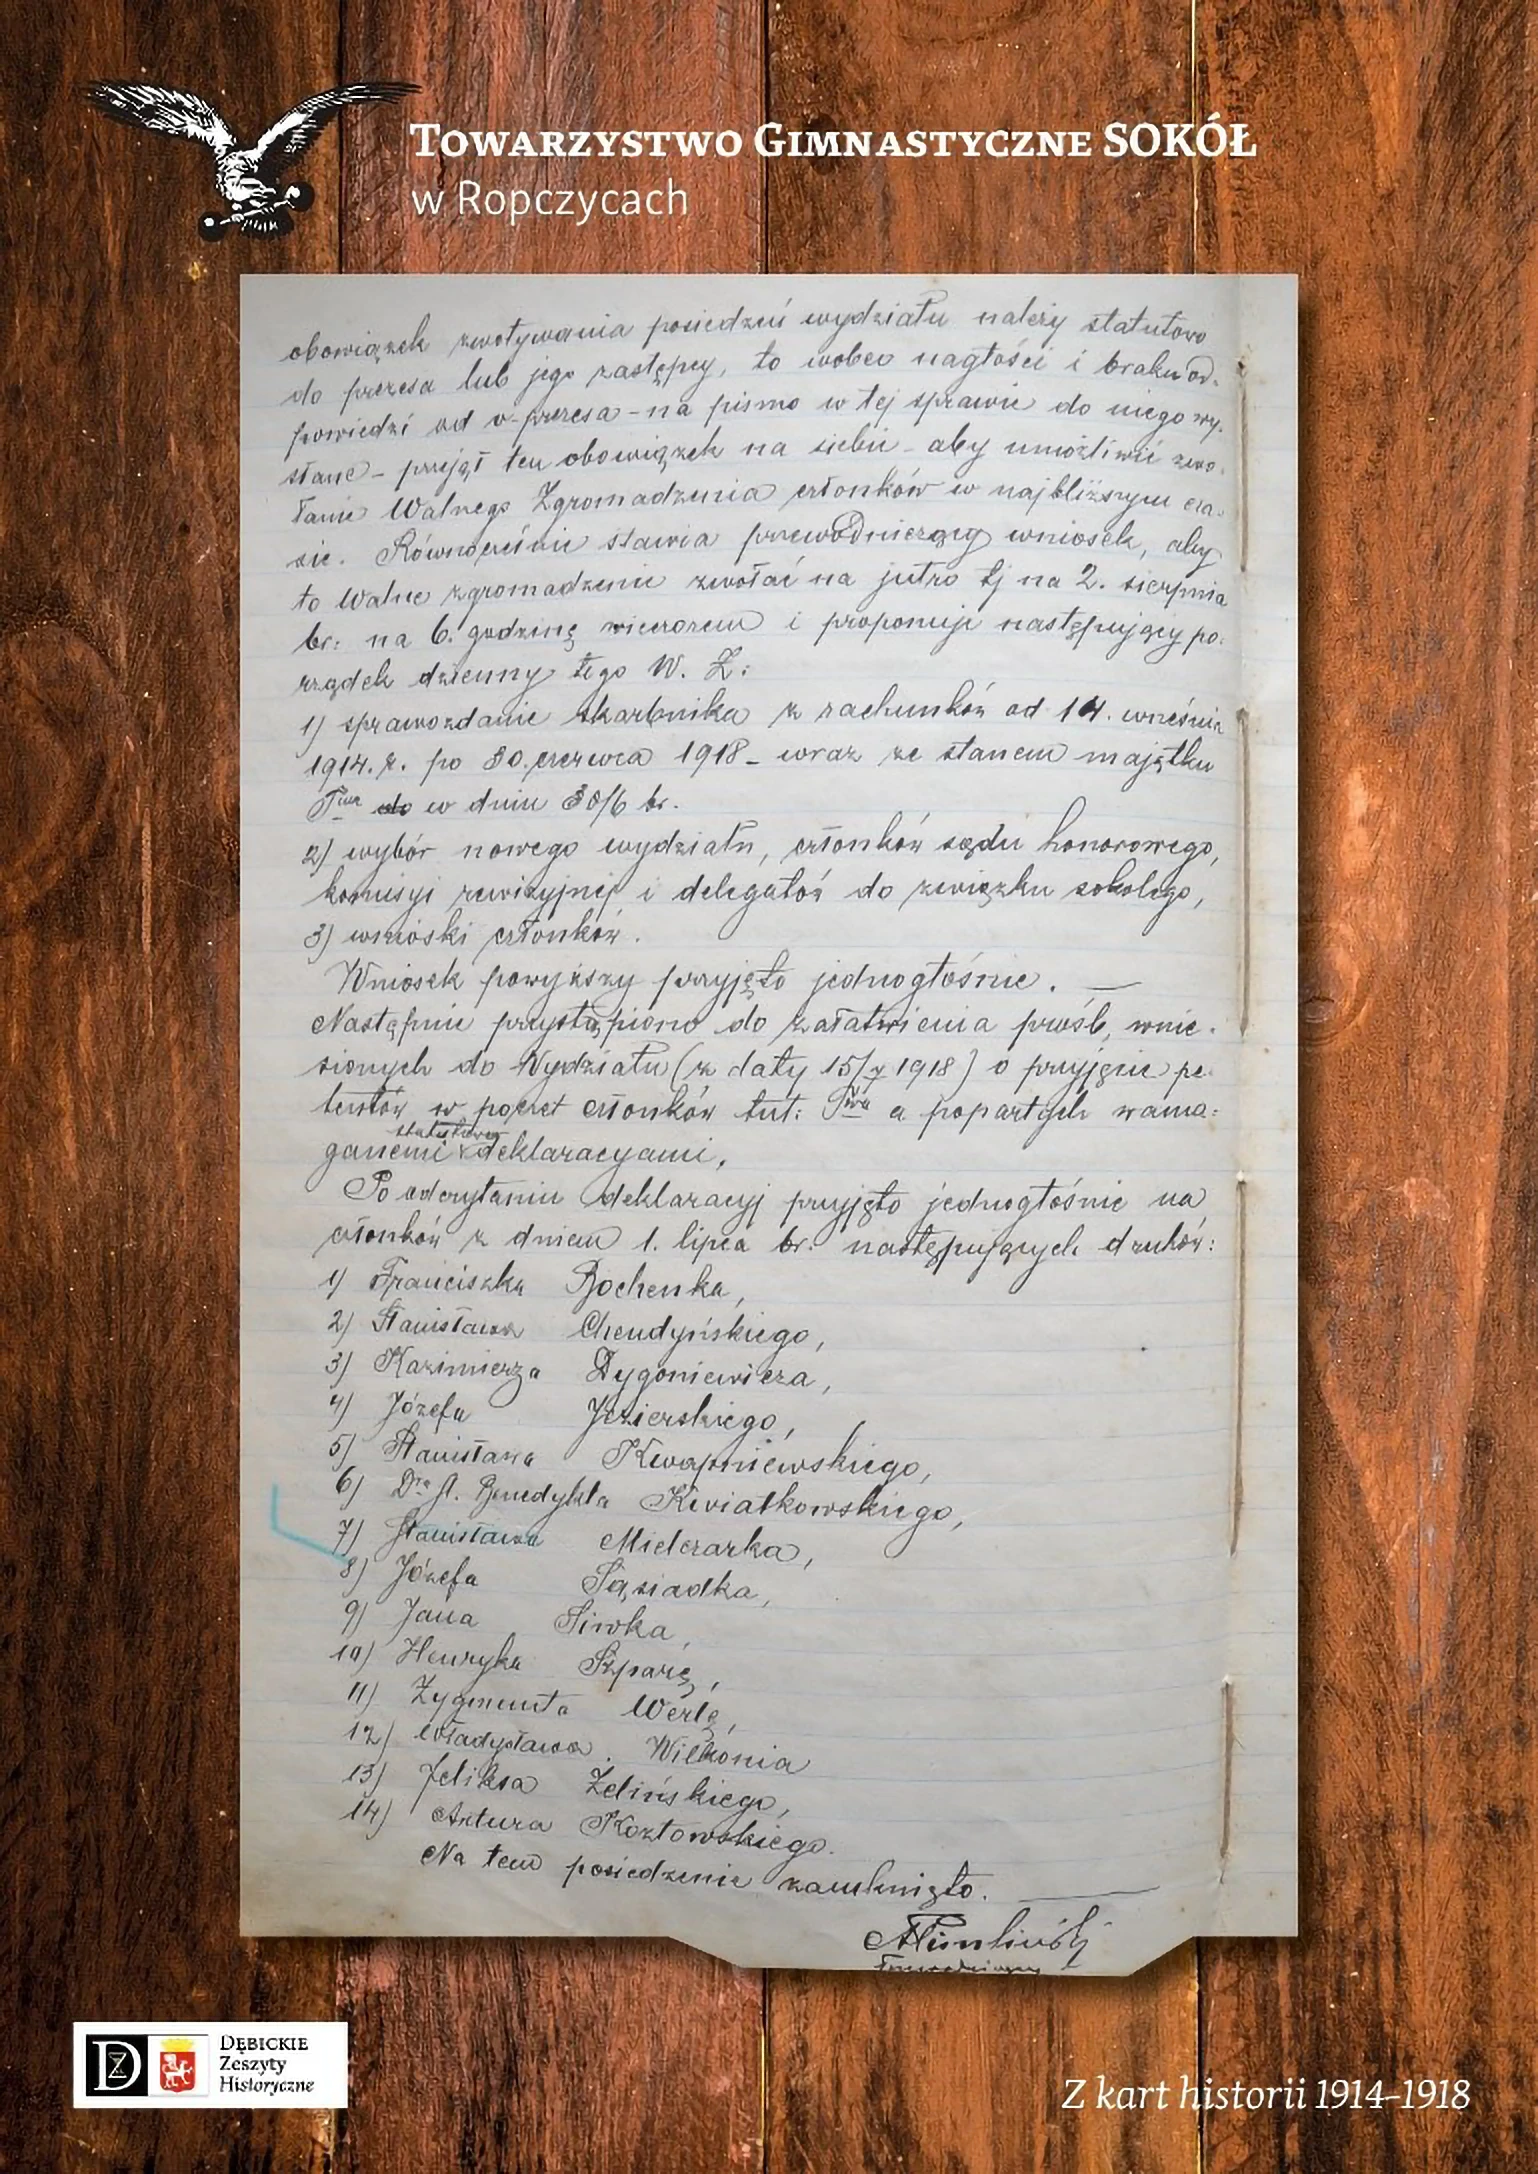 Towarzystwo Gimnastyczne SOKÓŁ
w Ropczycach
obowiązek zwoływania posiedzeń wydziału należy statutowo
do prezesa lub jego zastępcy, to wobec nagłości i braku od-
powiedzi od v-prezesa - na pismo w tej sprawie do niego wy-
słane - przejął ten obowiązek na siebie - aby umożliwić zwo-
łanie Walnego Zgromadzenia członków w najbliższym cza-
sie. Równocześnie stawia przewodniczący wniosek, aby
to Walne zgromadzenie zwołać na jutro tj na 2. sierpnia
br: na 6. godzinę wieczorem i proponuje następujący po-
rządek dzienny tego W. Z:
1) sprawozdanie skarbnika z rachunków od 14. września
1914. r. po 30. czerwca 1918 - wraz ze stanem majątku
Twa do w dniu 30/6 br.
2) wybór nowego wydziału, członków sądu honorowego,
komisyi rewizyjnej i delegatów do związku sokolego,
3) wnioski członków.
Wniosek powyższy przyjęto jednogłośnie. —
Następnie przystąpiono do załatwienia próśb, wnie-
sionych do Wydziału (z daty 15/7 1918) o przyjęcie pe-
tentów w poczet członków tut: Twa a popartych wyma-
ganemi statutowo deklaracyami.
Po odczytaniu deklaracyj przyjęto jednogłośnie na
członków z dniem 1. lipca br. następujących druhów:
1) Franciszka Bochenka,
2) Stanisława Chendyńskiego,
3) Kazimierza Dygoniewicza,
4) Józefa Jezierskiego,
5) Stanisława Kwapniewskiego,
6) Dra St. Benedykta Kwiatkowskiego,
7) Stanisława Mielczarka,
8) Józefa Sąsiadka,
9) Jana Siwka
10) Henryka Szparę,
11) Zygmunta Werlę,
12) Władysława Wilkonia
13) Feliksa Zelińskiego,
14) Artura Kozłowskiego.
Na tem posiedzenie zamknięto. —
Przewodniczący
DĘBICKIE
Zeszyty
Historyczne
Z kart historii 1914-1918